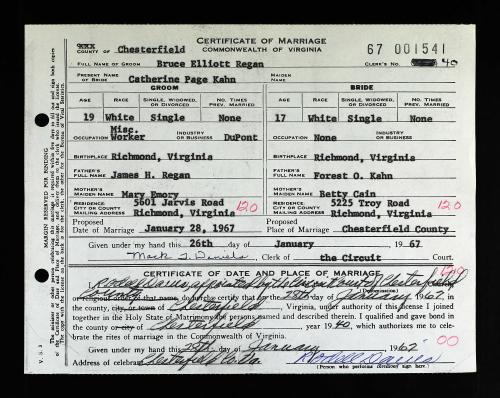 CERTIFICATE OF MARRIAGE
COMMONWEALTH OF VIRGINIA
67 001541
COUNTY OF Chesterfield
FULL NAME OF GROOM Bruce Elliott Regan CLERK'S NO. 40
PRESENT NAME OF BRIDE Catherine Page Kahn MAIDEN NAME
GROOM BRIDE
AGE RACE SINGLE, WIDOWED, OR DIVORCED NO. TIMES PREV. MARRIED AGE RACE SINGLE, WIDOWED, OR DIVORCED NO. TIMES PREV. MARRIED
19 White Single None 17 White Single None
OCCUPATION Misc. Worker INDUSTRY OR BUSINESS DuPont OCCUPATION None INDUSTRY OR BUSINESS
BIRTHPLACE Richmond, Virginia BIRTHPLACE Richmond, Virginia
FATHER'S FULL NAME James H. Regan FATHER'S FULL NAME Forest O. Kahn
MOTHER'S MAIDEN NAME Mary Emory MOTHER'S MAIDEN NAME Betty Cain
RESIDENCE: CITY OR COUNTY MAILING ADDRESS 5601 Jarvis Road Richmond, Virginia 120 RESIDENCE: CITY OR COUNTY MAILING ADDRESS 5225 Troy Road Richmond, Virginia 120
Proposed Date of Marriage January 28, 1967 Proposed Place of Marriage Chesterfield County
Given under my hand this 26th day of January 1967
Mack T. Daniels, Clerk of the Circuit Court.
CERTIFICATE OF DATE AND PLACE OF MARRIAGE 120
I, appointed by the Circuit Court of Chesterfield
religious that name, do hereby certify that on the day of January 1967, in
the county, city, or town of Chesterfield, Virginia, under authority of this license I joined together
in the Holy State of Matrimony the persons named and described therein. I qualified and gave bond in
the county or city of Chesterfield year 1940, which authorizes me to celebrate
the rites of marriage in the Commonwealth of Virginia.
Given under my hand this day of January 1967 00
Address of celebrant Chesterfield
(Person who performs ceremony sign here)
V. S. 3
MARGIN RESERVED FOR BINDING